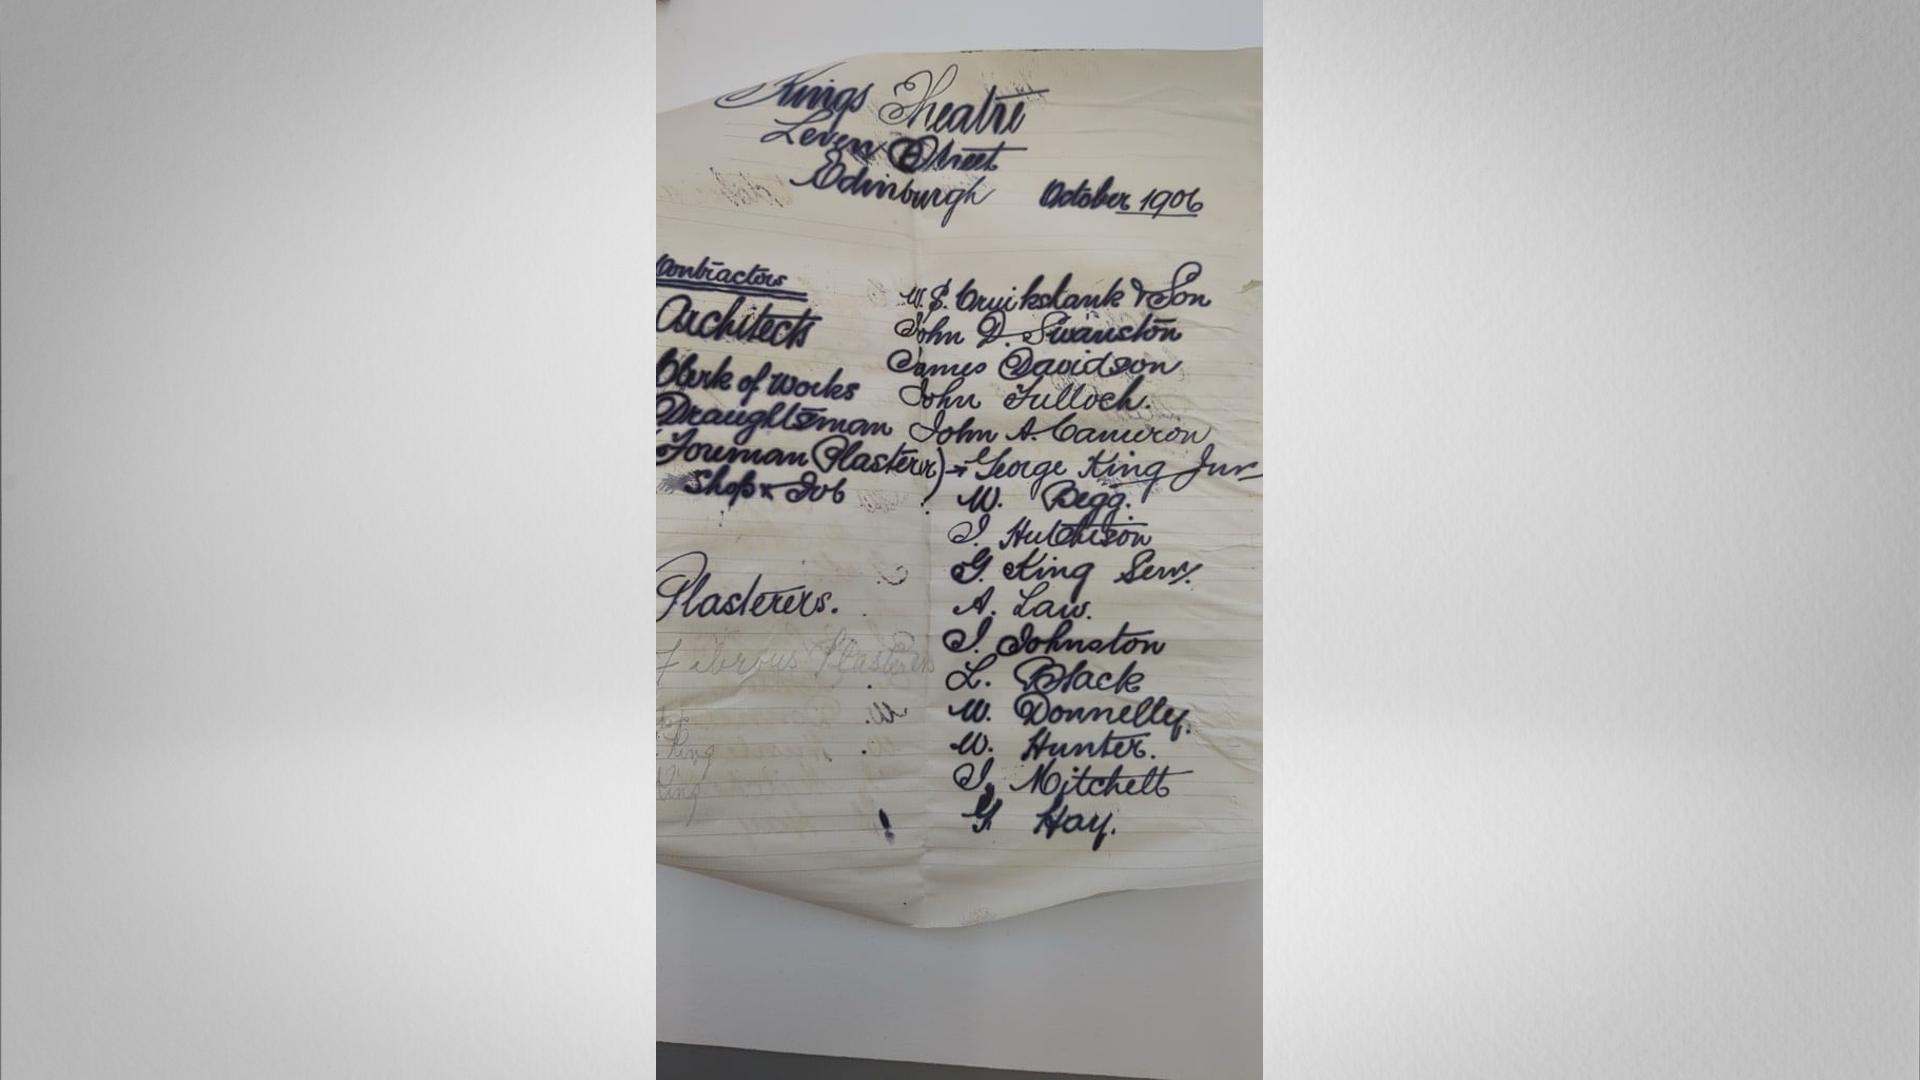 Kings Theatre
Leven Street
Edinburgh October 1906
Contractors W. S. Cruikshank & Son
Architects John D. Swanston
James Davidson
Clerk of Works John Tulloch.
Draughtsman John A. Cameron
(Foreman Plasterer) George King Junr
Shop & Job W. Begg.
J. Hutchison
G. King Senr.
Plasterers. A. Law.
J. Johnston
Fibrous Plasterers
L. Black
W. Donnelly.
King W. Hunter.
King J. Mitchell
G Hay.